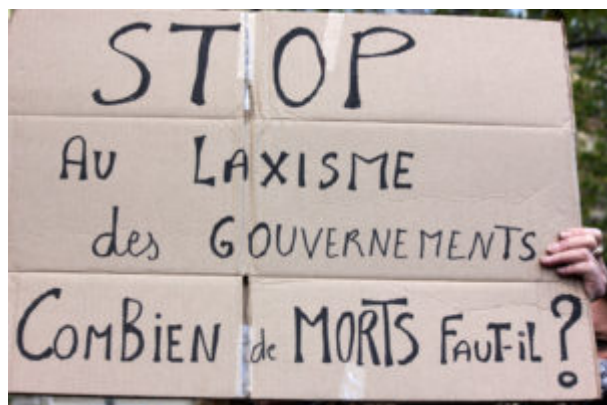 STOP
AU LAXISME
des GOUVERNEMENTS
COMBIEN de MORTS FAUT-IL ?